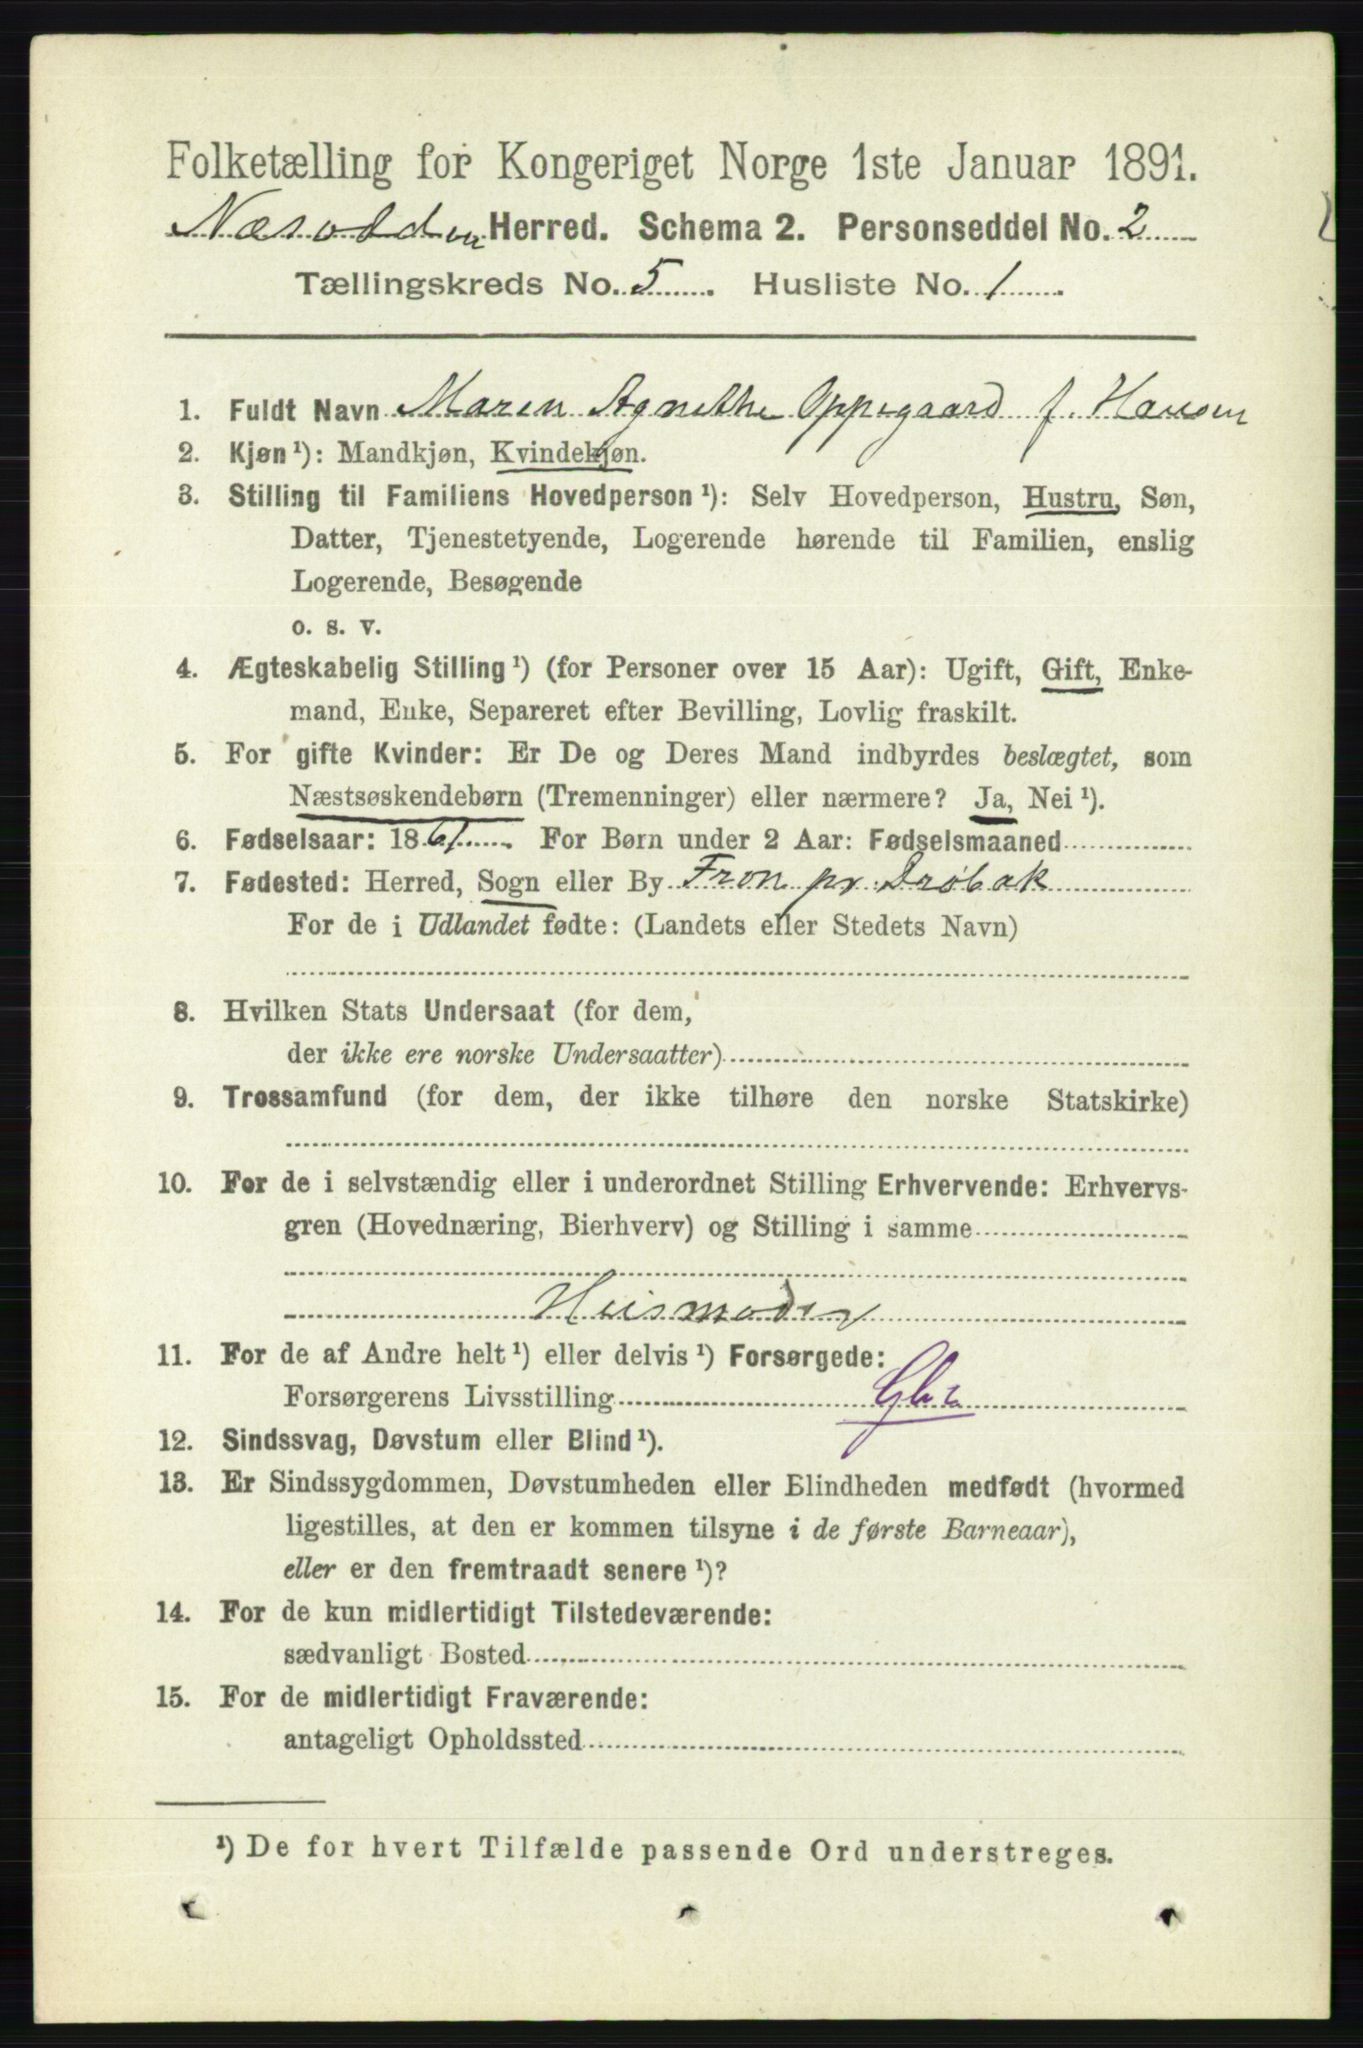 Folketælling for Kongeriget Norge 1ste Januar 1891.
Næsodden Herred. Schema 2. Personseddel No. 2
Tællingskreds No. 5. Husliste No. 1.
1. Fuldt Navn Maren Agnethe Oppegaard f. Hansen
2. Kjøn ¹): Mandkjøn, Kvindekjøn.
3. Stilling til Familiens Hovedperson ¹): Selv Hovedperson, Hustru, Søn,
Datter, Tjenestetyende, Logerende hørende til Familien, enslig
Logerende, Besøgende
o. s. v.
4. Ægteskabelig Stilling ¹) (for Personer over 15 Aar): Ugift, Gift, Enke-
mand, Enke, Separeret efter Bevilling, Lovlig fraskilt.
5. For gifte Kvinder: Er De og Deres Mand indbyrdes beslægtet, som
Næstsøskendebørn (Tremenninger) eller nærmere? Ja, Nei ¹).
6. Fødselsaar: 1861. For Børn under 2 Aar: Fødselsmaaned
7. Fødested: Herred, Sogn eller By Fron pr. Drøbak
For de i Udlandet fødte: (Landets eller Stedets Navn)
8. Hvilken Stats Undersaat (for dem,
der ikke ere norske Undersaatter)
9. Trossamfund (for dem, der ikke tilhøre den norske Statskirke)
10. For de i selvstændig eller i underordnet Stilling Erhvervende: Erhvervs-
gren (Hovednæring, Bierhverv) og Stilling i samme
Huismoder
11. For de af Andre helt ¹) eller delvis ¹) Forsørgede:
Forsørgerens Livsstilling
12. Sindssvag, Døvstum eller Blind ¹).
13. Er Sindssygdommen, Døvstumheden eller Blindheden medfødt (hvormed
ligestilles, at den er kommen tilsyne i de første Barneaar),
eller er den fremtraadt senere ¹)?
14. For de kun midlertidigt Tilstedeværende:
sædvanligt Bosted
15. For de midlertidigt Fraværende:
antageligt Opholdssted
¹) De for hvert Tilfælde passende Ord understreges.